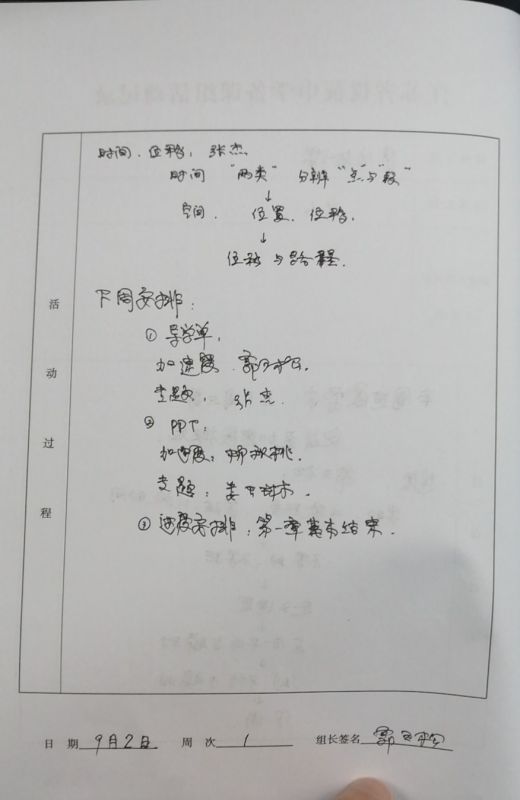 时间、位移：张杰
时间 "两类" 分辨 "点与段"
↓
空间. 位置、位移.
↓
位移与路程.
活动过程
下周安排：
① 导学单：
加速度.
专题： 张杰.
② PPT：
加速度：
专题：
③ 进度安排：第一章基本结束.
日 期 9月2日 周 次 1 组长签名